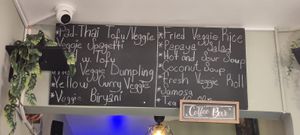 *Pad-Thai Tofu/Veggie
Veggie Spagetti
w. Tofu
Veggie Dumpling
*Yellow Curry Veggie
*Veggie Biryani
*Fried Veggie Rice
*Papaya Salad
*Hot and Sour Soup
*Coconut Soup
*Fresh Veggie Roll
*Samosa
*Tea
Coffee Bar